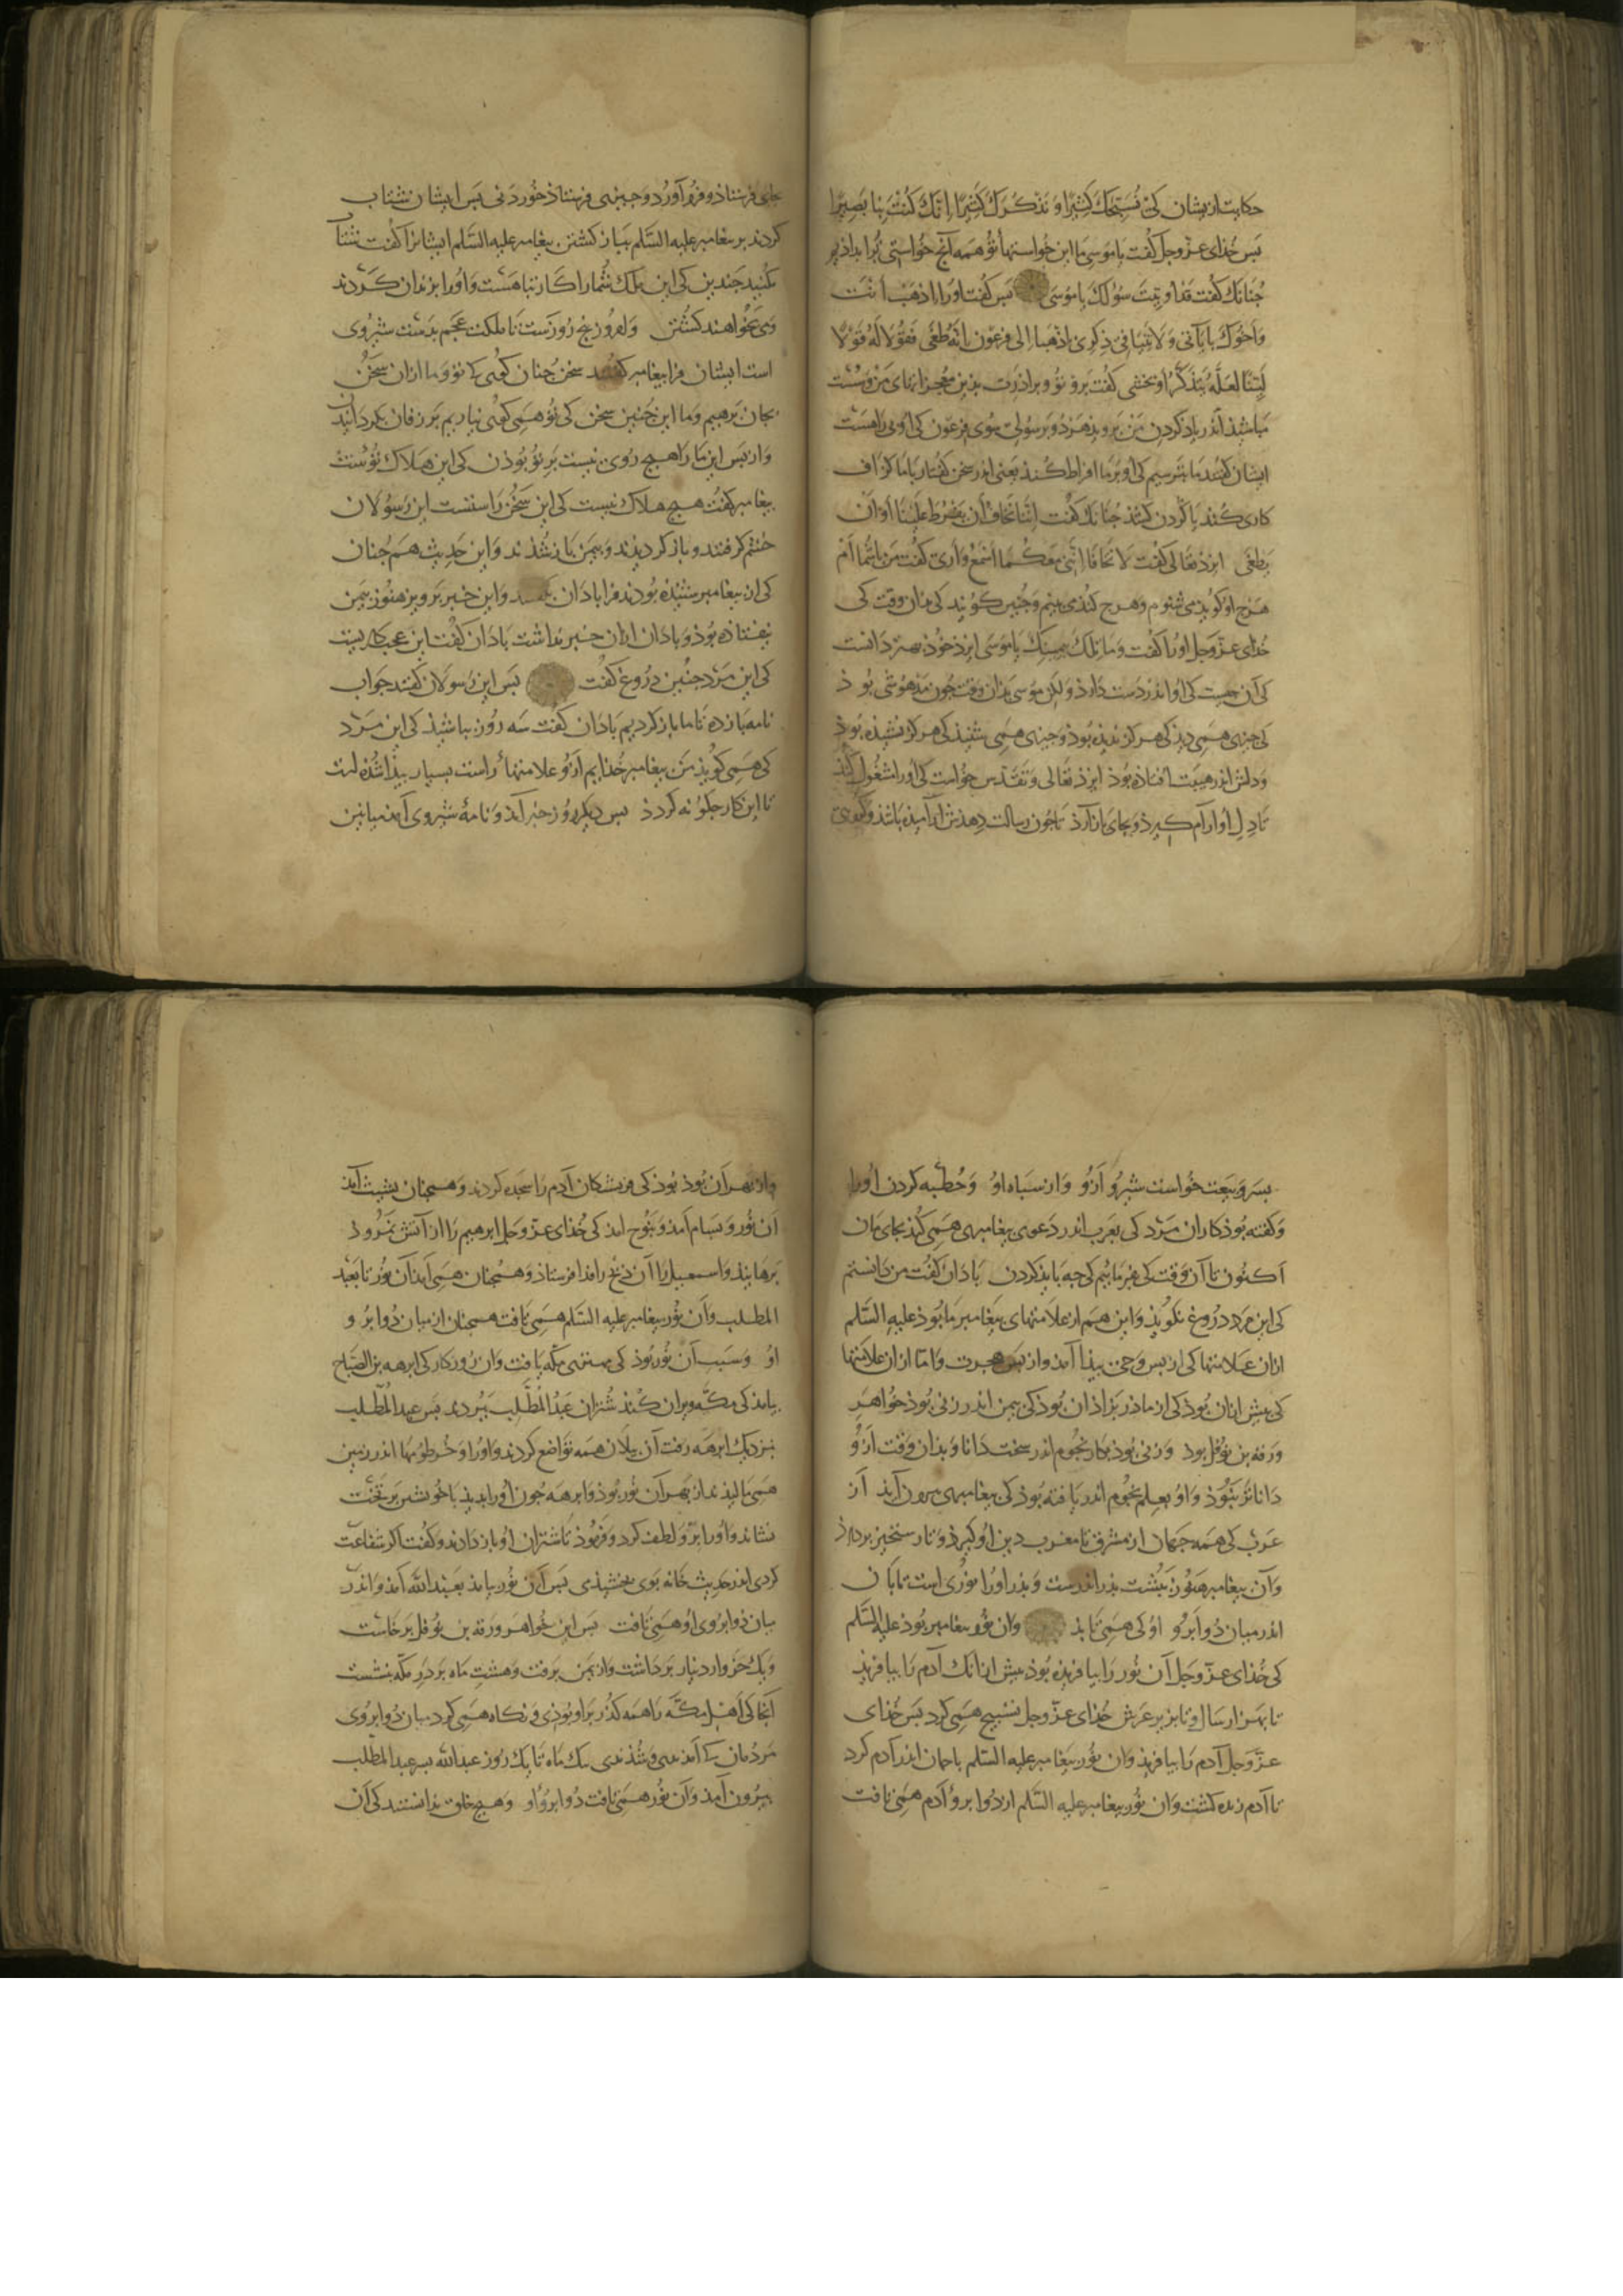 حکایت از یشان کی نُسَبِّحَكَ كَثِيرًا وَ نَذْكُرَكَ كَثِيرًا اِنَّكَ كُنْتَ بِنَا بَصِيرًا
بس خُدای عزّ وجل کفت یا موسی ما این خواستهاتو همه آنج خواستی ترا بداذیم
جُنانك کفت قد اوتیت سؤلك یا موسی بس کفت او را اذهب انت
وَاخوك بایاتی ولا تنیا فی ذکری اذهبا الی فرعون انه طغی فقولا له قولا
لَيِّنًا لعلّه یتذکّر او یخشی کفت برو تو و براذرت بذین معجزاتهای من و سست
مباشیذ اندر یاذ کردن من بروید هر دو برسولی سوی فرعون کی او بی راهست
ایشان کفتند ما بترسیم کی او بر ما افراط کند یعنی اندر سخن کفتار با ما کزاف
کاری کند یا کردن کشذ جنانك کفت اننا نخاف ان یفرط علینا او ان
یطغی ایزذ تعالی کفت لا تخافا اننی معکما اسمع واری کفت من با شما ام
هرج او کویذ می شنوم و هرج کنذ می بینم و جنین کویند کی بدان وقت کی
خدای عزّ وجل او را کفت وما تلك بیمینك یا موسی ایزذ خوذ بهتر دانست
کی آن جیست کی او اندر دست داوذ ولکن موسی بذان وقت جون مدهوشی بوذ
کی جیزی همی دید کی هرکز ندیذه بوذ و جیزی همی شنیذ کی هرکز نشنیذه بوذ
و دلش اندر هیبت افتاذه بوذ ایزذ تعالی و تقدس خواست کی او را مشغول کند
تا دل او ارام کیرذ و بجای باز آرذ تا جون رسالت دهذش آرامیذه باشذ و
جای فرستاذ و فرو آورد و جیزی فرستاذ خوردنی بس ایشان شتاب
کردند بر بیغامبر علیه السلم بباز کشتن بیغامبر علیه السلم ایشانرا کفت شتاب
مکنید جندین کی این ملك شما را کار تباهست و او را بزندان کردند
و می بخواهند کشتن و امروز بنج روزست تا ملکت عجم بدست شیروی
است ایشان فرا بیغامبر کفتند سخن جنان کوی کی تو و ما ازان سخن
بجان برهیم و ما این جنین سخن کی تو همی کوئی نیاریم بر زفان بکردانید
و از بس این ما را هیج روی نیست بر تو بوذن کی این هلاك تؤست
بیغامبر کفت هیج هلاك نیست کی این سخن راستست این رسولان
خشم کرفتند و باز کردیدند و بیمن باز شذند و این حدیث هم جنان
کی ان بیغامبر شنیده بودند فرا باذان بکفتند و این خبر برویز هنوز بیمن
نیفتاذه بوذ و باذان ازان خبر نداشت باذان کفت این عجب کاریست
کی این مرد جنین دروغ کفت بس این رسولان کفتند جواب
نامه باز ده تا ما باز کردیم باذان کفت سه روز بباشیذ کی این مرد
کی همی کویذ من بیغامبر خذایم ازو علامتهاء راست بسیار بیذا شده است
تا این کار جکونه کردد بس دیکر روز خبر آمذ و نامه شیروی آمذ میانین
بسر و بیعت خواست شیرو ازو و از سباه او و خطبه کردن او را
و کفته بوذ کاران مرد کی بعرب اندر دعوی بیغامبری همی کند بجای مان
اکنون تا آن وقت کی بفرماییم کی جه باید کردن باذان کفت من دانستم
کی این مرد دروغ نکویذ و این هم از علامتهای بیغامبر ما بوذ علیه السلم
ازان علامتها کی از بس وحی بیذا آمذ و از بس هجرت و اما ازان علامتها
کی بیش ازان بوذ کی از ماذر بزاذ ان بوذ کی بیمن اندر زنی بوذ خواهر
ورقه بن نوفل بود و زنی بوذ بکار نجوم اندر سخت دانا و بدان وقت ازو
داناتر نبوذ و او بعلم نجوم اندر یافته بوذ کی بیغامبری بیرون آید از
عرب کی همه جهان از مشرق تا مغرب دین او کیرذ و تا رستخیز بردارذ
و آن بیغامبر هنوز ببشت بذر اندرست و بذر او را نوری است تابان
اندر میان دو ابرو او کی همی تابذ و ان نور بیغامبر بوذ علیه السلم
کی خذای عزّ وجل آن نور را بیافریذه بوذ بیش ازانك آدم را بیافریذ
تا بهزار سال و تا بزیر عرش خذای عزّ وجل تسبیح همی کرد بس خذای
عزّ وجل آدم را بیافریذ و ان نور بیغامبر علیه السلم باحمان اندر آدم کرد
تا آدم زنده کشت و ان نور بیغامبر علیه السلم از دو ابروء آدم همی تافت
و از بهر آن نور بوذ کی فریشتکان آدم را سجده کردند و همجنان بشیث آمذ
آن نور و بسام آمذ و بنوح امد کی خذای عزّ وجل ابرهیم را از آتش نمرود
برهانیذ و اسمعیل را آن ذبح را فدا فرستاذ و همجنان همی آمذ آن نور تا بعبد
المطلب و آن نور بیغامبر علیه السلم همی تافت همجنان از میان دو ابرو
او و سبب آن نور بوذ کی مهتری مکّه یافت و ان روزکار کی ابرهه بن الصباح
بیامذ کی مکّه ویران کند شتران عبد المطلب ببردند بس عبد المطلب
نزدیك ابرهه رفت آن بیلان همه تواضع کردند و او را و خرطومها اندر زمین
همی مالیذند از بهر آن نور بوذ و ابرهه جون او را بدید با خویشتن بر تخت
نشاند و او را برّ و لطف کرد و فرموذ تا شتران او باز دادند و کفت اکر شفاعت
کردی اندر حدیث خانه بوی بخشیذمی بس آن نور بیامذ بعبد الله آمذ و اندر
میان دو ابروی او همی تافت بس این خواهر ورقه بن نوفل برخاست
و یك خروار دینار برداشت و از یمن برفت و هشت ماه بر در مکّه بنشست
آنجا کی اهل مکّه را همه کذر بر او بوذی و نکاه همی کرد میان دو ابروی
مردمان کی آمذندی و شذندی یك ماه تا یك روز عبد الله بسر عبد المطلب
بیرون آمذ و آن نور همی تافت دو ابروء او و هیج خلق ندانستند کی آن